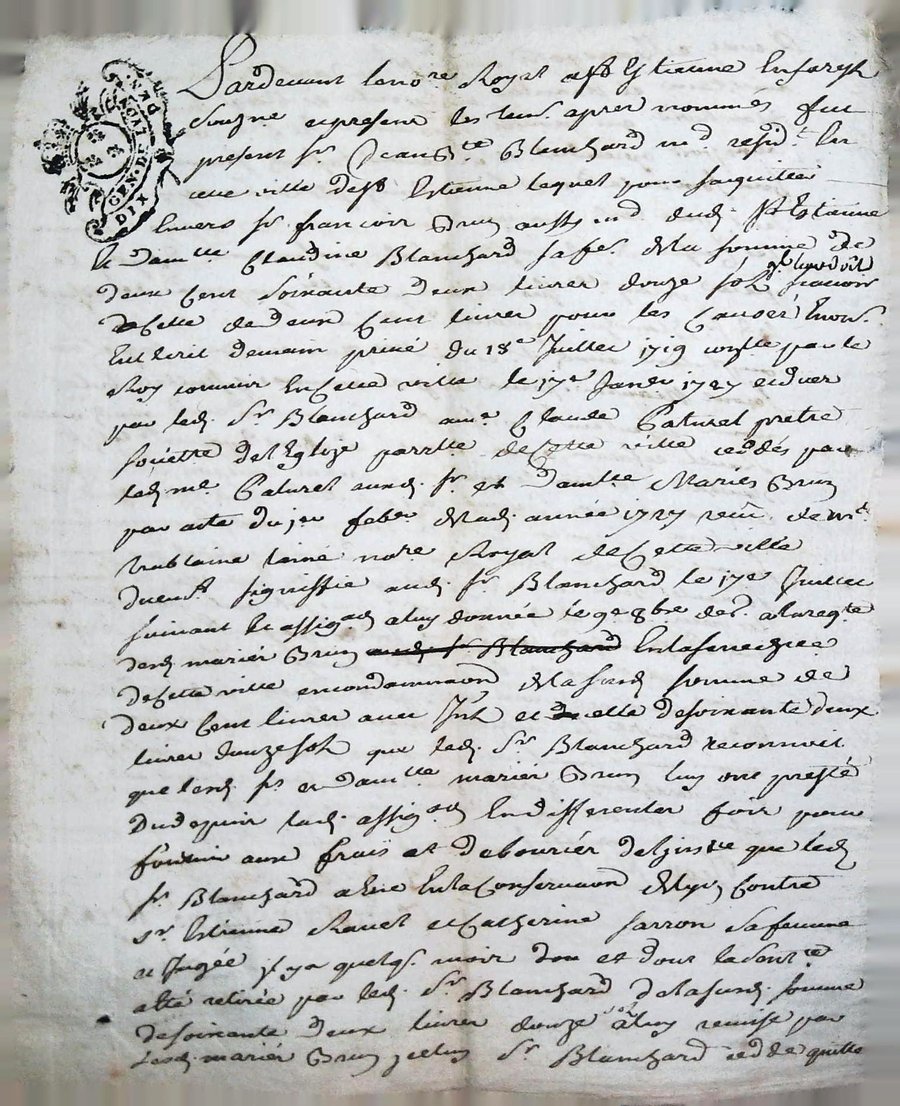 GEN. DE LION
DIX DEN
Pardevant le no.re Royal a St Estienne En forest
Sousig.ne et present les tem. apres nommés fut
present Sr Jean B.te Blanchard m.d resid.t En
cette ville de St Estienne lequel pour s'aquitter
Envers Sr francois Brun aussy m.d dud. St Estienne
et dam.lle Claudine Blanchard sa fe. de la somme de
deux Cent soixante deux livres douze sols qu'il leur doit scavoir
Celle de deux Cent livres pour les Causes Enon.
En Ecrit de main privé du 18e Juillet 1719 par le
Roy En Cette ville le 17e Janv. 1727 et
par led. Sr Blanchard a m.e Claude Paturel pretre
societ.re de l'Eglize parr.lle de Cette ville cedés par
led. m.e Paturel aud. Sr et dam.lle Mariés Brun
par acte du febv.r de lad. année 1727 receu de m.e
tublaine lainé no.re Royal de Cette ville
signiffié aud. Sr Blanchard le 17e Juillet
suivant et assig.on a luy donnée le 9e 8bre des. a la req.te
desd. mariés Brun aud. Sr Blanchard En la senechaée
de Cette ville en condamnaon de la susd. somme de
deux Cent livres avec Int. et celle de soixante deux
livres douze sols que led. Sr Blanchard reconnoit
que lesd. Sr et dam.lle mariés Brun luy ont presté
du depuis lad. assig.on En differentes fois pour
fournir aux frais et debourcés de l'inst.ce que led.
Sr Blanchard a Eüe En la Conservaon de Lyon Contre
Sr Estienne Ravel et Catherine sarron sa femme
et Jugée il y a quelq. mois dou et dont la sent.ce
a été retirée par led. Sr Blanchard de la susd. somme
de soixante deux livres douze s. a luy remise par
lesd. mariés Brun iceluy Sr Blanchard cedde quitte